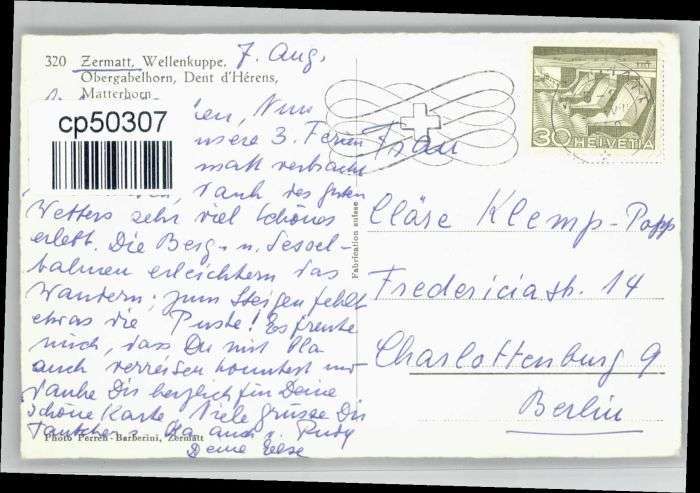 320 Zermatt, Wellenkuppe,
Obergabelhorn, Dent d'Hérens,
Matterhorn
7. Aug.
cp50307
Nun
unsere 3. Ferien
verbracht
Dank des guten
Wetters sehr viel Schönes
erlebt. Die Berg- u. Sessel-
bahnen erleichtern das
Wandern; zum Steigen fehlt
etwas die Puste! Es freute
mich, dass Du mit Ola
auch verreisen konntest und
danke Dir herzlich für Deine
schöne Karte. Viele Grüsse Dir
Tautchen u. Ola auch v. Rudy
Deine Ilse
Photo Perren-Barberini, Zermatt
Fabrication suisse
30 HELVETIA
Frau
Cläre Klemp-Papp
Fredericiastr. 14
Charlottenburg 9
Berlin